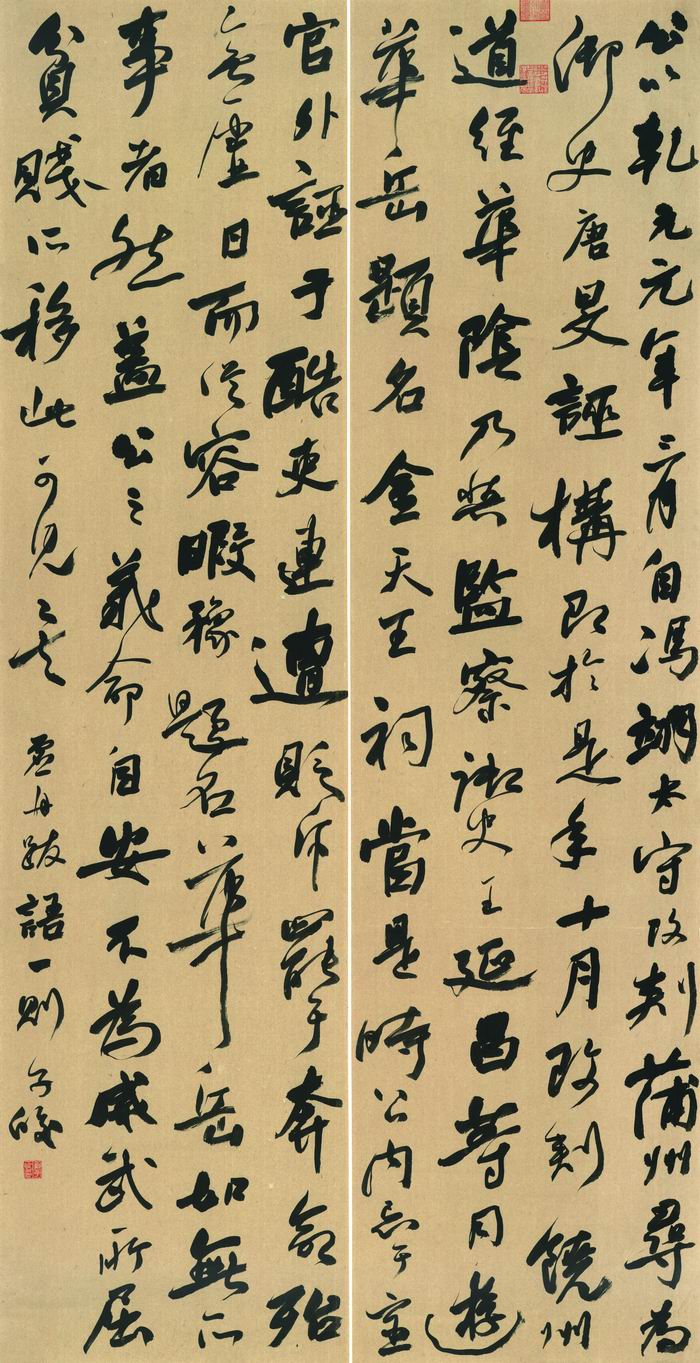 公以乾元元年三月自馮翊太守改刺蒲州尋為
御史唐旻誣構即於是年十月改刺饒州
道經華陰乃與監察御史王延昌等同遊
華岳題名金天王祠當是時公內忌于宰
官外誣于酷吏連遭貶斥罷于奔命殆
無虛日而從容暇豫題名華岳如無所
事者然蓋公之義命自安不為威武所屈
貧賤所移此可見之矣
虛舟跋語一則